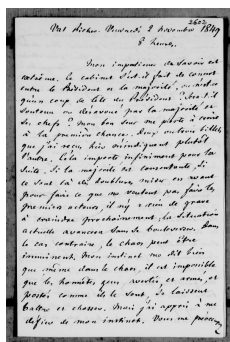 2602
Val Richer. Vendredi 2 novembre 1849
8 heures
Mon impatience de savoir est
extrême. Le cabinet s'est-il fait de concert
entre le Président et la majorité, ou est-ce
qu'un coup de tête du Président ? Sera-t-il
soutenu ou désavoué par la majorité et
ses chefs ? Mon bon sens me porte à croire
à la première chance. Deux ou trois billets
que j'ai reçus hier m'indiquent plutôt
l'autre. Cela importe infiniment pour la
suite. Si la majorité est consentante, si
ce sont là des doublures mises en avant
pour faire ce que ne veulent pas faire les
premiers acteurs, il n'y a rien de grave
à craindre prochainement ; la situation
actuelle avancera sans se bouleverser. Dans
le cas contraire, le chaos peut être
imminent. Mon instinct me dit bien
que même dans le chaos, il est impossible
que les honnêtes gens, avertis, et armés, et
postés comme ils le sont, se laissent
battre et chasser. Mais j'ai appris à me
défier de mon instinct. Vous me